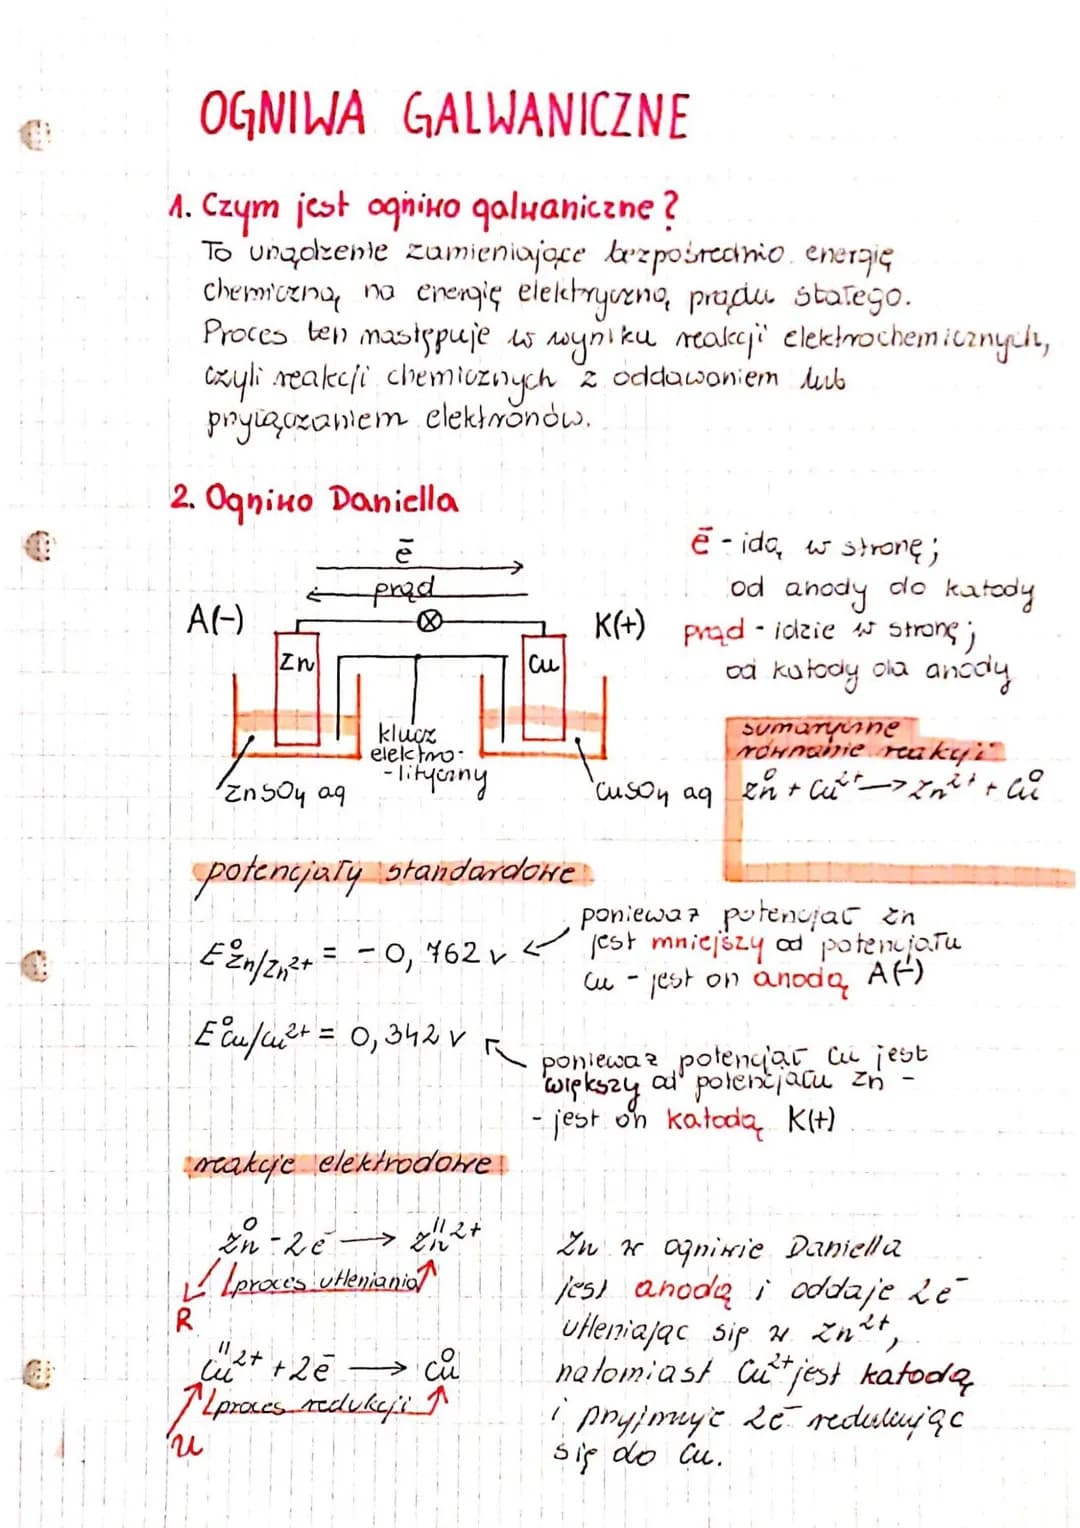 OGNIWA GALWANICZNE
1. Czym jest ogniwo galwaniczne?
To urządzenie zamieniające bezpośrednio energię
chemiczną na energię elektryczną prądu stałego.
Proces ten następuje w wyniku reakcji elektrochemicznych,
czyli reakcji chemicznych z oddawaniem lub
przyłączaniem elektronów.
2. Ogniwo Daniella
ē
prąd
A(-)
K(+)
Zn
Cu
klucz
elektro-
-lityczny
ZnSO4 aq
CuSO4 aq
ē - idą w stronę;
od anody do katody
prąd - idzie w stronę;
od katody dla anody
sumaryczne
równanie reakcji:
Zn⁰ + Cu²⁺ → Zn²⁺ + Cu⁰
potencjały standardowe
E°Zn/Zn²⁺ = -0,762 V
ponieważ potencjał Zn
jest mniejszy od potencjału
Cu - jest on anodą A(-)
E°Cu/Cu²⁺ = 0,342 V
ponieważ potencjał Cu jest
większy od potencjału Zn -
- jest on katodą K(+)
reakcje elektrodowe
Zn⁰ - 2ē → Zn^II 2+
proces utleniania
R
Cu^II 2+ + 2ē → Cu⁰
proces redukcji
U
Zn w ogniwie Daniella
jest anodą i oddaje 2e⁻
utleniając się w Zn²⁺,
natomiast Cu²⁺ jest katodą
i przyjmuje 2e⁻ redukując
się do Cu.